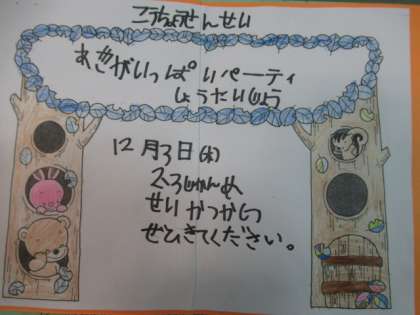 こうちょうせんせい
あきがいっぱいパーティ
しょうたいじょう
12月3日(水)
2、3じかんめ
せいかつかしつ
ぜひきてください。